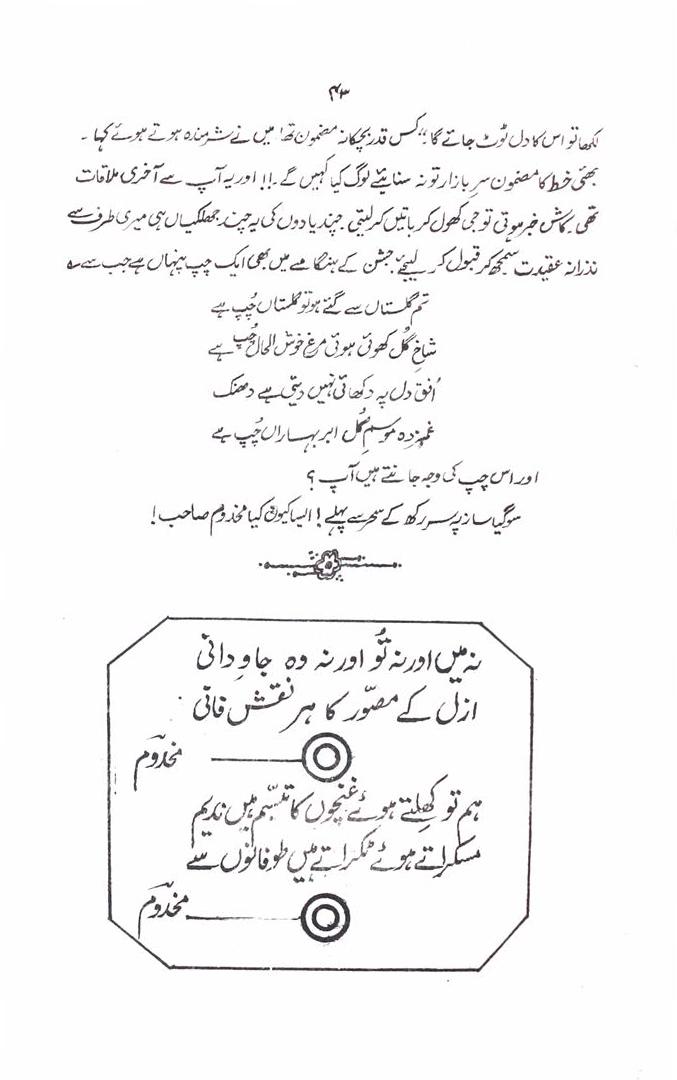 ۴۳
لکھا تو اس کا دل ٹوٹ جاتے گا“ کس قدر بچکانہ مضمون تھا میں نے شرمندہ ہوتے ہوئے کہا ۔
بھئی خط کا مضمون سر بازار تو نہ سنایئے لوگ کیا کہیں گے ۔!! اور یہ آپ سے آخری ملاقات
تھی۔ کاش خبر ہوتی تو جی کھول کر باتیں کر لیتی ۔ چند یادوں کی یہ چند جھلکیاں ہی میری طرف سے
نذرانہ عقیدت سمجھ کر قبول کر لیجئے جشن کے ہنگامے میں بھی ایک چپ پنہاں ہے جب سے ؎
تم گلستاں سے گئے ہو تو گلستاں چُپ ہے
شاخِ گُل کھوئی ہوئی مرغِ خوش الحال چُپ ہے
اُفق دل پہ دکھائی نہیں دیتی ہے دھنک
غمزدہ موسمِ گُل ابر بہاراں چُپ ہے
اور اس چپ کی وجہ جانتے ہیں آپ ؟
سو گیا ساز پہ سر رکھ کے سحر سے پہلے ! ایسا کیوں کیا مخدوم صاحب !
نہ میں اور نہ تُو اور نہ وہ جاوِدانی
ازل کے مصوّر کا ہر نقش فانی
مخدومؔ
ہم تو کھِلتے ہوئے غنچوں کا تبسّم ہیں ندیم
مسکراتے ہوئے ٹکراتے ہیں طوفانوں سے
مخدومؔ